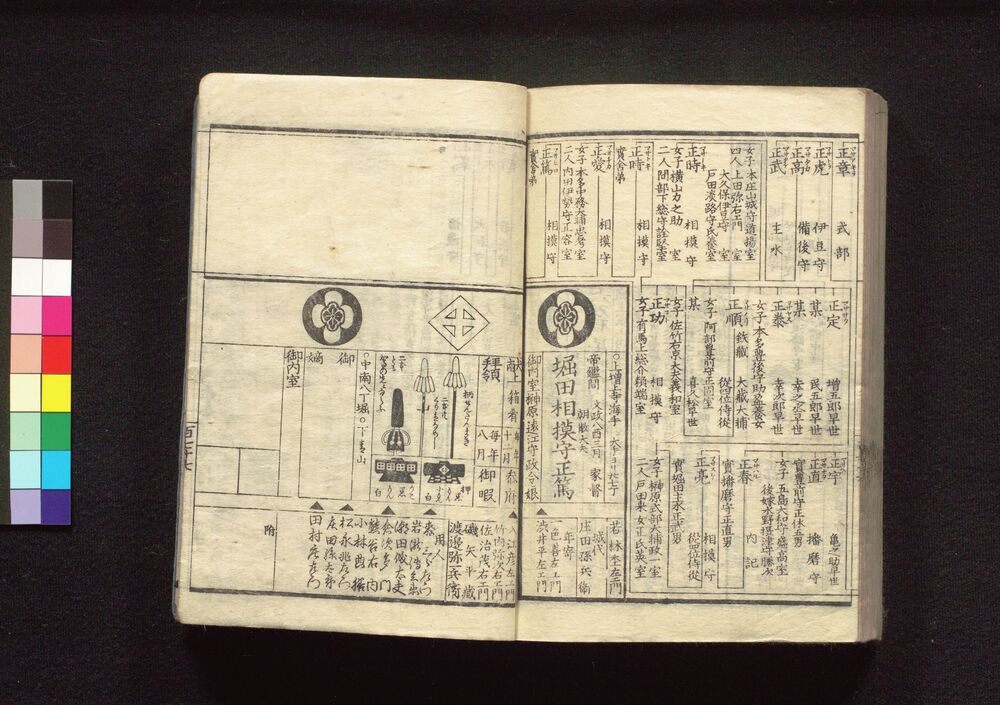 正章 式部
正虎 伊豆守
正高 備後守
正武 主水
女子 本庄山城守道揚室
四人 上田弥右エ門室
大久保伊豆守室
戸田淡路守氏養室
正時 相摸守
女子 横山力之助室
二人 間部下総守詮堅室
正時 相摸守
實舎弟
正愛 相摸守
女子 本多中務大輔忠考室
二人 内田伊勢守正容室
正篤 相摸守
實舎弟
正定 増五郎早世
某 民五郎早世
某 幸之丞早世
正泰 幸次郎早世
女子 本多豊後守助盈養女
正順 鉄蔵 大蔵大輔 従四位侍従
女子 阿部豊前守正固室
某 喜久松早世
女子 佐竹右京大夫義和室
正功 相摸守
女子 有馬上総介頼端室
正守 亀之助早世
正直 播磨守
實豊前守正休五男
女子 五島大和守盛高室
後嫁水野摂津守勝次
正春 内記
實播磨守正直男
正亮 相摸守 従四位侍従
實堀田主水正武男
女子 榊原式部大輔政一室
二人 戸田采女正氏英室
帝鑑間 朝散大夫
文政八酉三月 家督
堀田相摸守正篤
御内室榊原遠江守政令娘
若林杢左エ門
城代
庄田孫兵衛
年寄
一色善左エ門
渋井平左エ門
献上
拝領
毎年十月参府
八月御暇
○中南八丁堀○下青山
御嫡
御内室
入江彦左エ門
竹内弥次右エ門
佐治茂右エ門
磯矢平蔵
渡邉弥一兵衛
用人
潮田儀太夫
倉次多門
熊谷右内
小林酉操
松永兆左衛門
庄田孫太郎
田村庄左衛門
附